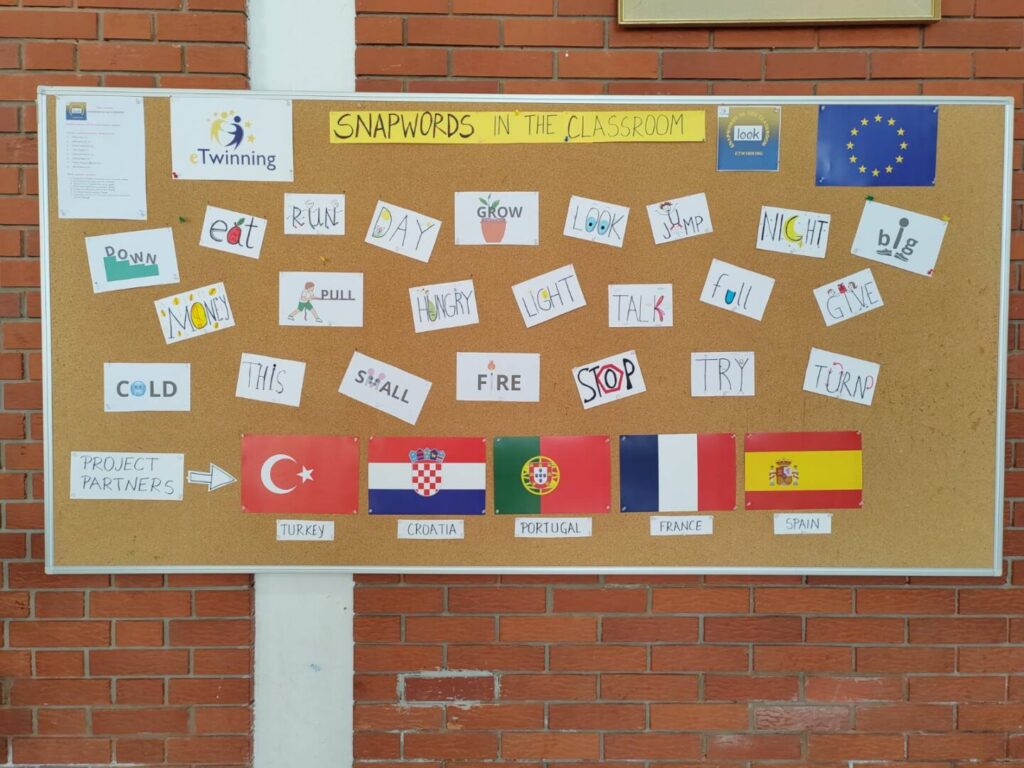 eTwinning
SNAPWORDS IN THE CLASSROOM
look
ETWINNING
DOWN
eat
RUN
DAY
GROW
LOOK
JUMP
NIGHT
big
MONEY
PULL
HUNGRY
LIGHT
TALK
full
GIVE
COLD
THIS
SMALL
FIRE
STOP
TRY
TURN
PROJECT
PARTNERS
TURKEY
CROATIA
PORTUGAL
FRANCE
SPAIN